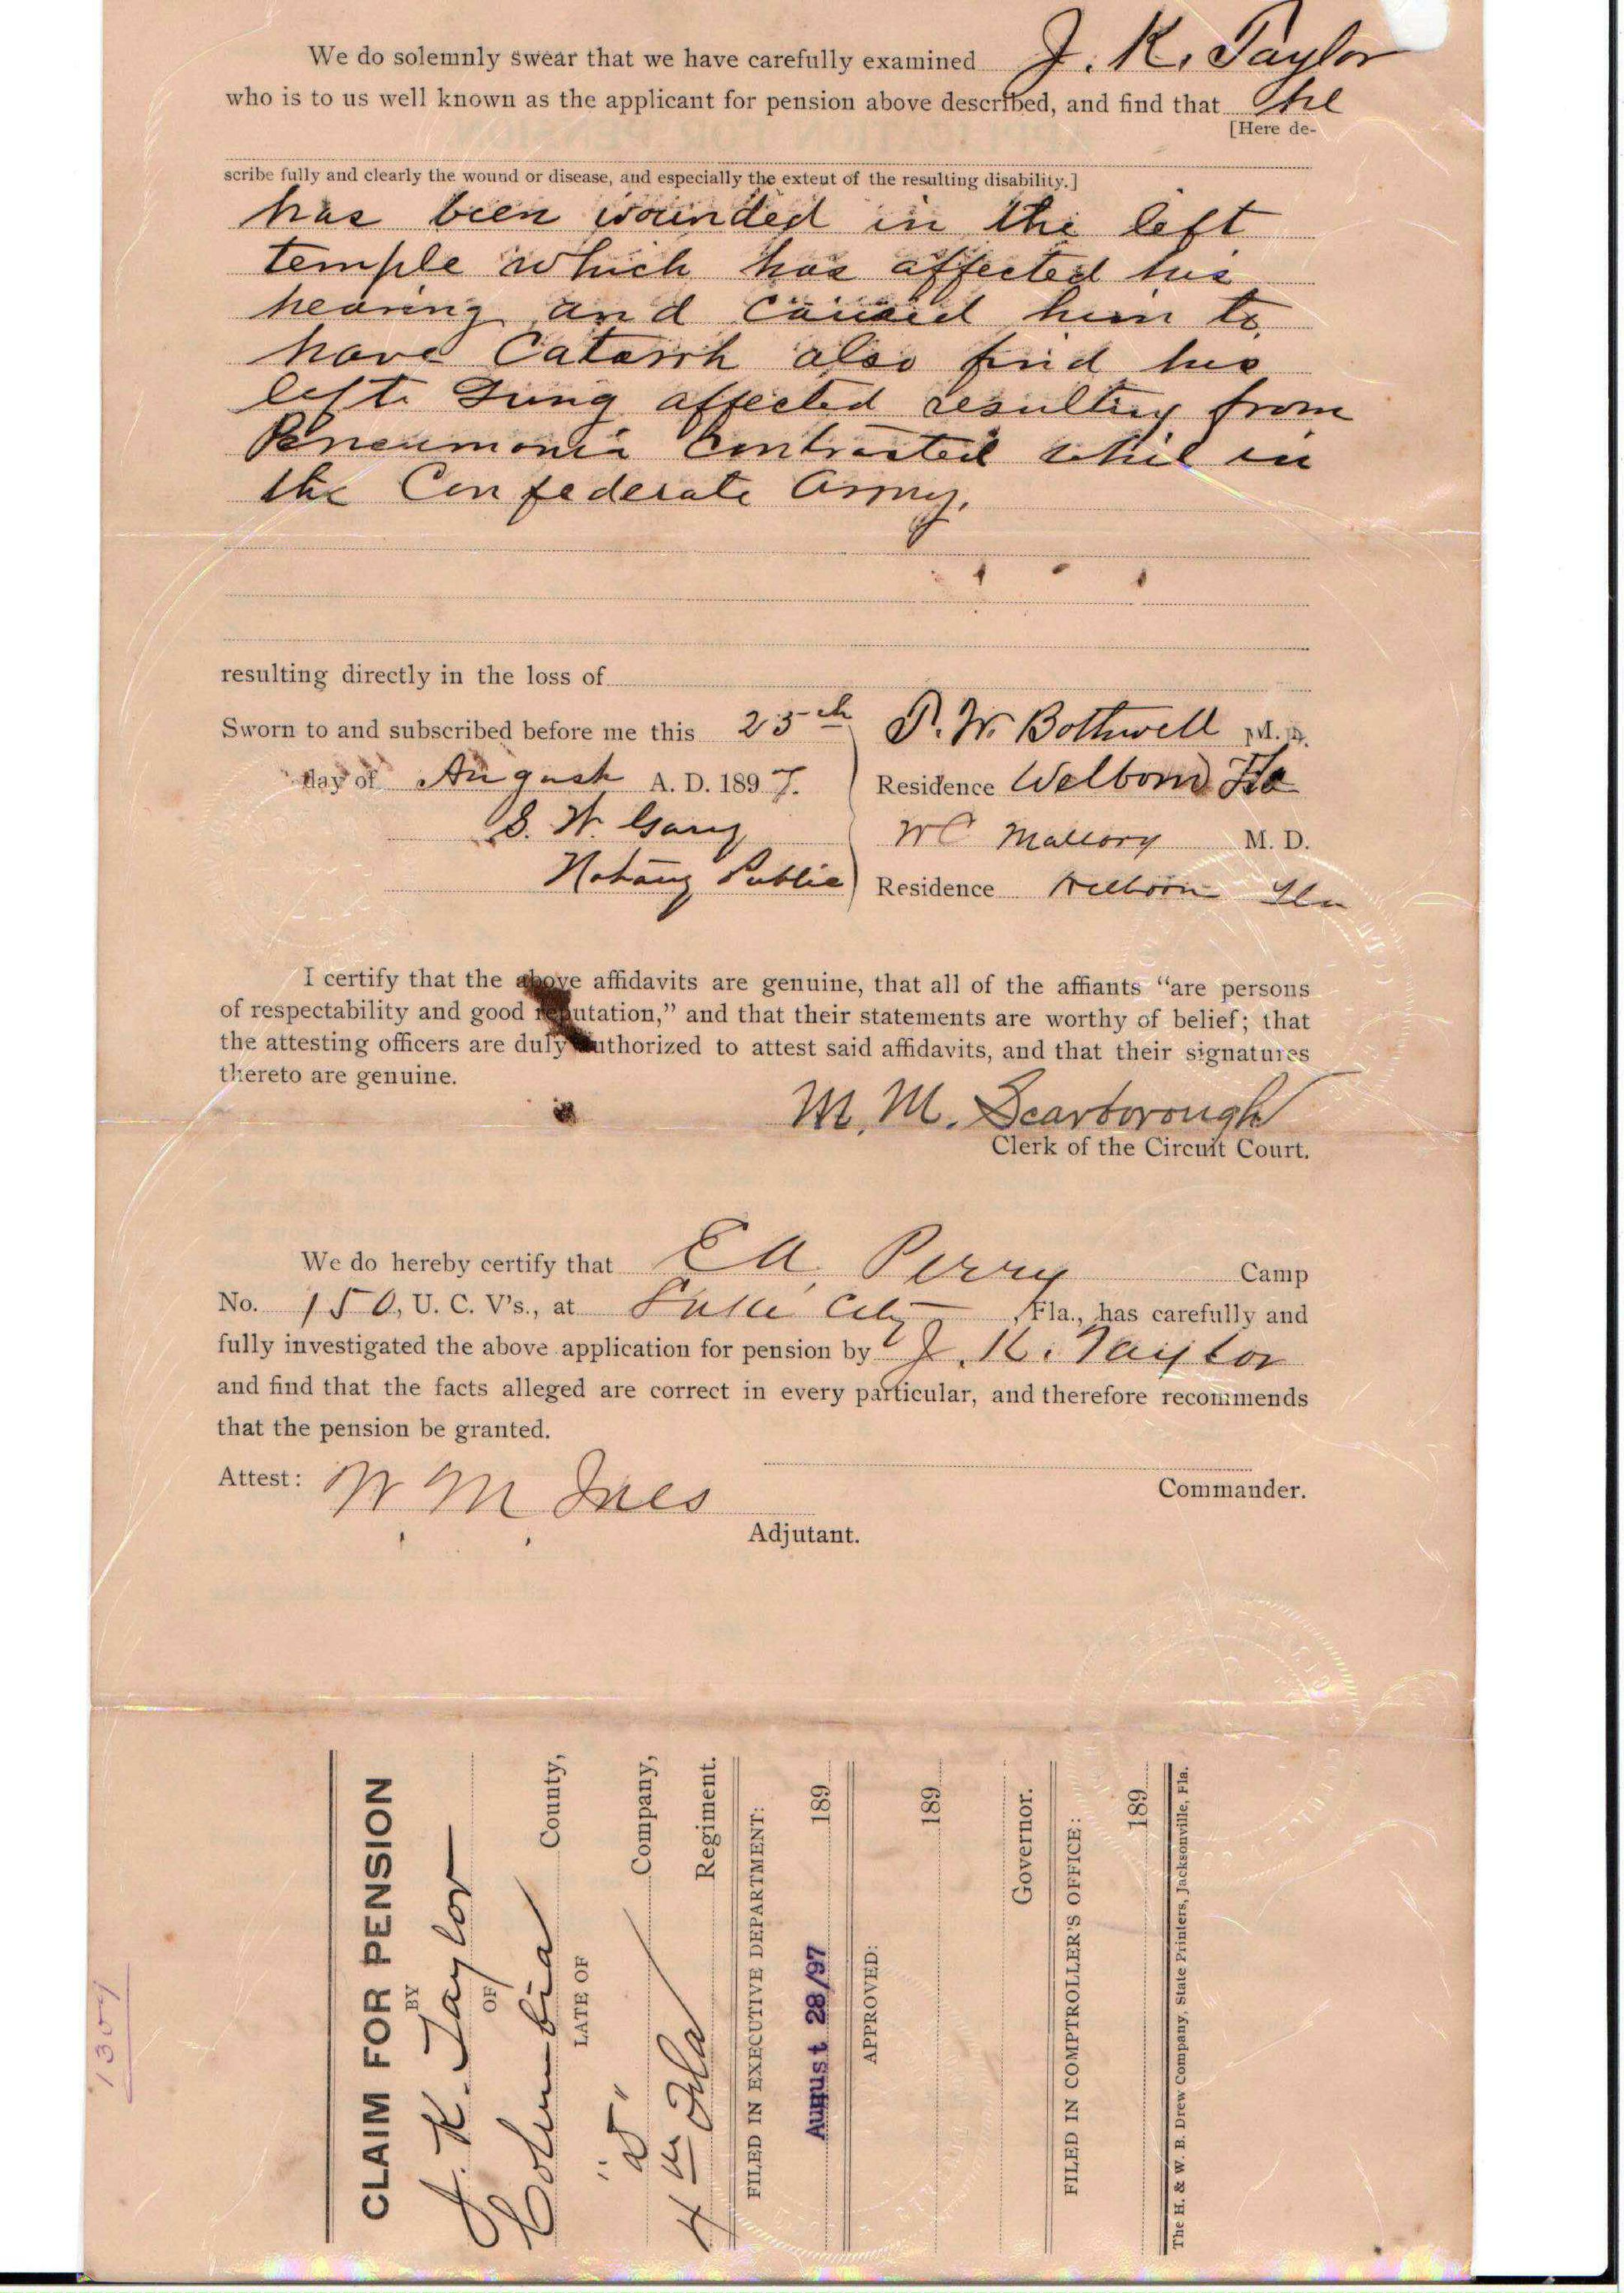 We do solemnly swear that we have carefully examined J. K. Taylor
who is to us well known as the applicant for pension above described, and find that he
[Here de-
scribe fully and clearly the wound or disease, and especially the extent of the resulting disability.]
has been wounded in the left
temple which has affected his
hearing and caused him to
have Catarrh also find his
left Lung affected resulting from
Pneumonia Contracted while in
the Confederate Army.
resulting directly in the loss of
Sworn to and subscribed before me this 25th
day of August A. D. 1897.
S. W. Gary
Notary Public
P. W. Bothwell M. D.
Residence Welborn Fla
W C Mallory M. D.
Residence Welborn Fla
I certify that the above affidavits are genuine, that all of the affiants "are persons
of respectability and good reputation," and that their statements are worthy of belief; that
the attesting officers are duly authorized to attest said affidavits, and that their signatures
thereto are genuine.
M. M. Scarborough
Clerk of the Circuit Court.
We do hereby certify that E A Perry Camp
No. 150, U. C. V's., at Lake City, Fla., has carefully and
fully investigated the above application for pension by J. K. Taylor
and find that the facts alleged are correct in every particular, and therefore recommends
that the pension be granted.
Attest: W M Ives
Adjutant.
Commander.
CLAIM FOR PENSION
BY
J. K. Taylor
OF
Columbia County,
LATE OF
Company,
4th Fla Regiment.
FILED IN EXECUTIVE DEPARTMENT:
August 28/97 189
APPROVED:
189
Governor.
FILED IN COMPTROLLER'S OFFICE:
189
The H. & W. B. Drew Company, State Printers, Jacksonville, Fla.